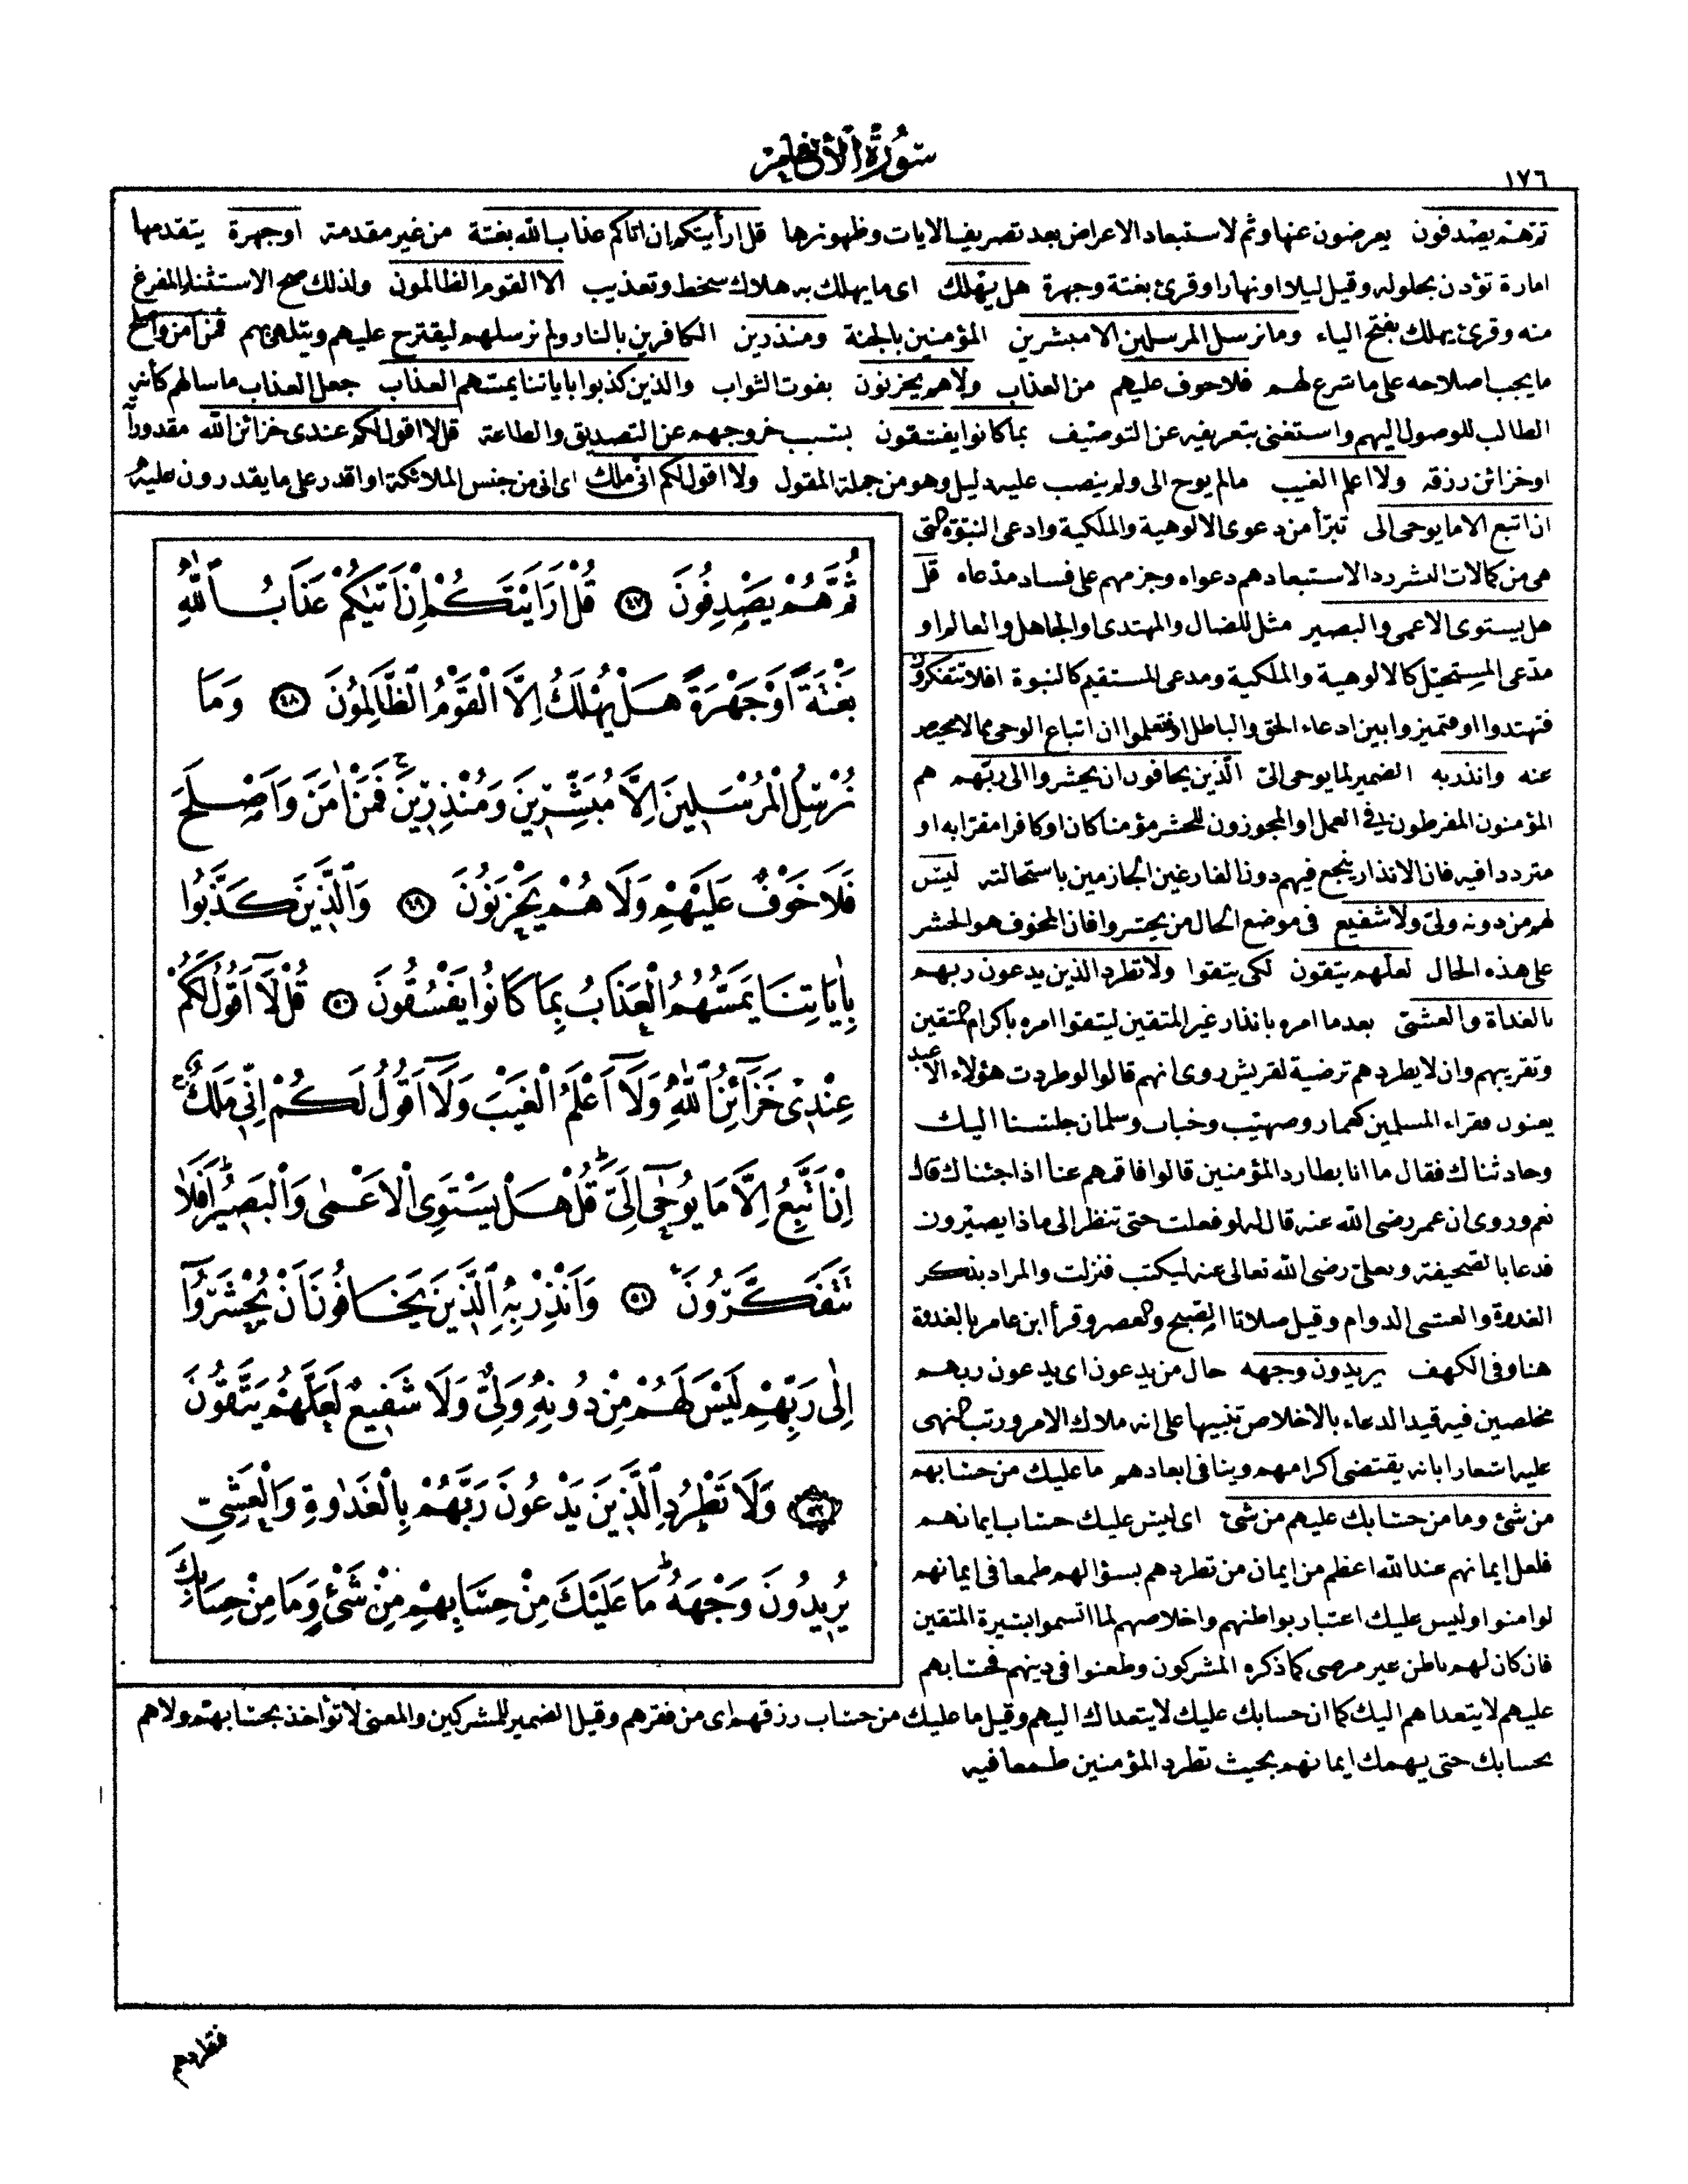 سورة الأنعام
١٧٦
ثم هم يصدفون يعرضون عنها وثم لاستبعاد الاعراض بعد تصريف الايات وظهورها قل ارأيتكم ان اتاكم عذاب الله بغتة من غير مقدمة او جهرة يتقدمها
امارة تؤذن بحلوله وقيل ليلا او نهارا وقرئ بغتة وجهرة هل يهلك اى ما يهلك به هلاك سخط وتعذيب الا القوم الظالمون ولذلك صح الاستثناء المفرغ
منه وقرئ يهلك بفتح الياء وما نرسل المرسلين الا مبشرين المؤمنين بالجنة ومنذرين الكافرين بالنار ولم نرسلهم ليقترح عليهم ويتلهى بهم فمن امن واصلح
ما يجب اصلاحه على ما شرع لهم فلا خوف عليهم من العذاب ولا هم يحزنون بفوت الثواب والذين كذبوا باياتنا يمسهم العذاب جعل العذاب ماسا لهم كأنه
الطالب للوصول اليهم واستغنى بتعريفه عن التوصيف بما كانوا يفسقون بسبب خروجهم عن التصديق والطاعة قل لا اقول لكم عندى خزائن الله مقدوراته
او خزائن رزقه ولا اعلم الغيب ما لم يوح الى ولم ينصب عليه دليل وهو من جملة المقول ولا اقول لكم انى ملك اى انى من جنس الملائكة او اقدر على ما يقدرون عليه
ان اتبع الا ما يوحى الى تبرأ من دعوى الالوهية والملكية وادعى النبوة التى
هى من كمالات البشر رد الاستبعادهم دعواه وجزمهم على فساد مدعاه قل
هل يستوى الاعمى والبصير مثل للضال والمهتدى او الجاهل والعالم او
مدعى المستحيل كالالوهية والملكية ومدعى المستقيم كالنبوة افلا تتفكرون
فتهتدوا او فتميزوا بين ادعاء الحق والباطل او فتعلموا ان اتباع الوحى مما لا محيص
عنه وانذر به الضمير لما يوحى الى الذين يخافون ان يحشروا الى ربهم هم
المؤمنون المفرطون فى العمل او المجوزون للحشر مؤمنا كان او كافرا مقرا به او
مترددا فيه فان الانذار ينجع فيهم دون الفارغين الجازمين باستحالته ليس
لهم من دونه ولى ولا شفيع فى موضع الحال من يحشروا فان المخوف هو الحشر
على هذه الحال لعلهم يتقون لكى يتقوا ولا تطرد الذين يدعون ربهم
بالغداة والعشى بعد ما امره بانذار غير المتقين ليتقوا امره باكرام المتقين
وتقريبهم وان لا يطردهم ترضية لقريش روى انهم قالوا لو طردت هؤلاء الاعبد
يعنون فقراء المسلمين كعمار وصهيب وخباب وسلمان جلسنا اليك
وحادثناك فقال ما انا بطارد المؤمنين قالوا فاقمهم عنا اذا جئناك قال
نعم وروى ان عمر رضى الله عنه قال له لو فعلت حتى تنظر الى ماذا يصيرون
فدعا بالصحيفة وبعلى رضى الله تعالى عنه ليكتب فنزلت والمراد بذكر
الغدوة والعشى الدوام وقيل صلاتا الصبح والعصر وقرأ ابن عامر بالغدوة
هنا وفى الكهف يريدون وجهه حال من يدعون اى يدعون ربهم
مخلصين فيه قيد الدعاء بالاخلاص تنبيها على انه ملاك الامر ورتب النهى
عليه اشعارا بانه يقتضى اكرامهم وينافى ابعادهم ما عليك من حسابهم
من شئ وما من حسابك عليهم من شئ اى ليس عليك حساب ايمانهم
فلعل ايمانهم عند الله اعظم من ايمان من تطردهم بسؤالهم طمعا فى ايمانهم
لو امنوا او ليس عليك اعتبار بواطنهم واخلاصهم لما اتسموا بسيرة المتقين
فان كان لهم باطن غير مرضى كما ذكره المشركون وطعنوا فى دينهم فحسابهم
عليهم لا يتعداهم اليك كما ان حسابك عليك لا يتعداك اليهم وقيل ما عليك من حساب رزقهم اى من فقرهم وقيل الضمير للمشركين والمعنى لا تؤاخذ بحسابهم ولا هم
بحسابك حتى يهمك ايمانهم بحيث تطرد المؤمنين طمعا فيه
ثُمَّ هُمْ يَصْدِفُونَ ٤٧ قُلْ اَرَاَيْتَكُمْ اِنْ اَتٰيكُمْ عَذَابُ اللّٰهِ
بَغْتَةً اَوْ جَهْرَةً هَلْ يُهْلَكُ اِلَّا الْقَوْمُ الظَّالِمُونَ ٤٨ وَمَا
نُرْسِلُ الْمُرْسَلِينَ اِلَّا مُبَشِّرِينَ وَمُنْذِرِينَ فَمَنْ اٰمَنَ وَاَصْلَحَ
فَلَا خَوْفٌ عَلَيْهِمْ وَلَا هُمْ يَحْزَنُونَ ٤٩ وَالَّذِينَ كَذَّبُوا
بِاٰيَاتِنَا يَمَسُّهُمُ الْعَذَابُ بِمَا كَانُوا يَفْسُقُونَ ٥٠ قُلْ لَا اَقُولُ لَكُمْ
عِنْدِى خَزَائِنُ اللّٰهِ وَلَا اَعْلَمُ الْغَيْبَ وَلَا اَقُولُ لَكُمْ اِنِّى مَلَكٌ
اِنْ اَتَّبِعُ اِلَّا مَا يُوحٰى اِلَىَّ قُلْ هَلْ يَسْتَوِى الْاَعْمٰى وَالْبَصِيرُ اَفَلَا
تَتَفَكَّرُونَ ٥١ وَاَنْذِرْ بِهِ الَّذِينَ يَخَافُونَ اَنْ يُحْشَرُوا
اِلٰى رَبِّهِمْ لَيْسَ لَهُمْ مِنْ دُونِهِ وَلِىٌّ وَلَا شَفِيعٌ لَعَلَّهُمْ يَتَّقُونَ
٥٢ وَلَا تَطْرُدِ الَّذِينَ يَدْعُونَ رَبَّهُمْ بِالْغَدٰوةِ وَالْعَشِىِّ
يُرِيدُونَ وَجْهَهُ مَا عَلَيْكَ مِنْ حِسَابِهِمْ مِنْ شَىْءٍ وَمَا مِنْ حِسَابِكَ
فتطردهم